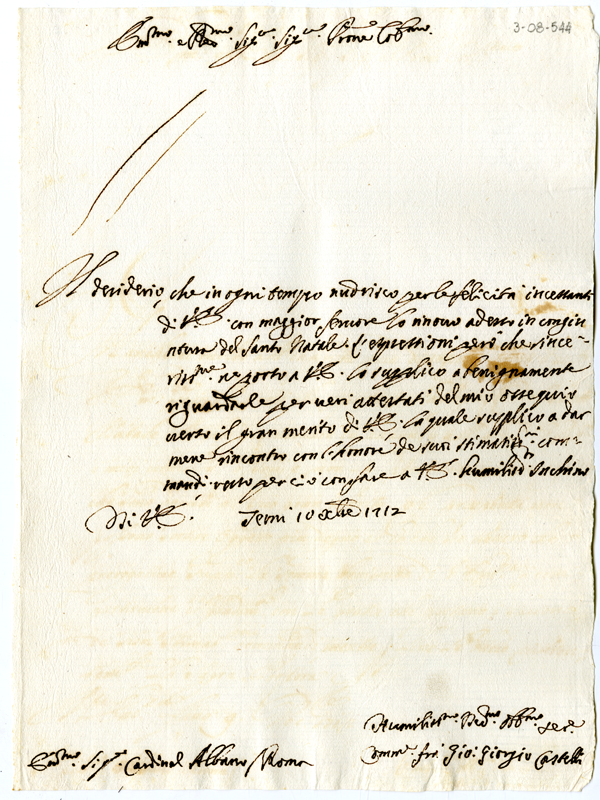 3-08-544
Em.mo e Rev.mo Sig.re Sig.re P.rone Col.mo
Il desiderio, che in ogni tempo nudrisco per le felicità incessanti
di V.E. con maggior fervore lo rinovo adesso in congiu
ntura del Santo Natale. L'espressioni però che since-
riss.me ne porto a V.E. la supplico a benignamente
riguardarle per veri attestati del mio ossequio
verso il gran merito di V.E. la quale supplico a dar
mene rincontro con l'honore de suoi stimatiss.mi com-
mandi resto per ciò con fare a V.E. humiliss.o Inchino
Di V.E. Iesi 10 Xbre 1712
Humiliss.mo Div.mo Obb.mo Ser.e
Em.mo Sig.r Cardinal Albano Roma
Comm.e fr. Gio: Giorgio Castelli